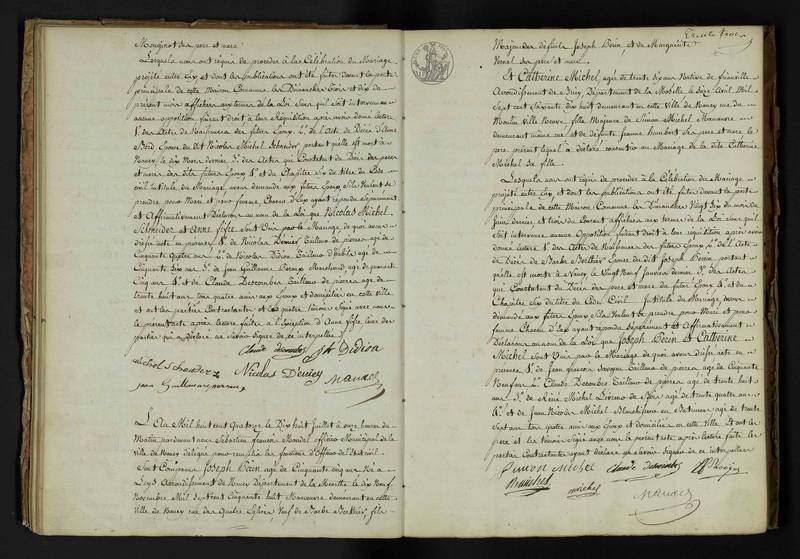 Mouginot ses pere et mere
Lesquels nous ont requis de proceder à la Célébration du Mariage
projetté entre Eux et dont les publications ont été faites devant la porte
principale de cette Maison Commune les Dimanches Trois et dix du
présent mois affichées aux termes de la Loi Sans qu'il soit intervenu
aucune opposition faisant droit à leur Réquisition après avoir donné lecture
1° des Actes de Naissances des futurs Epoux 2° de l'Acte de Décès
Epouse dudit Nicolas Michel Schneider portant qu'elle est morte à
Nancy le dix Mars dernier 3° des Actes qui Constatent du Décès des peres
et meres des dits futurs Epoux et du Chapitre Six du titre du Code
civil intitulé du Mariage avons demandé aux futurs Epoux s'ils veulent se
prendre pour Mari et pour femme, Chacun d'Eux ayant répondu séparément
et Affirmativement Déclarons au nom de la Loi que Nicolas Michel
Schneider et Anne fifre sont Unis par le Mariage de quoi avons
dressé acte en présence 1° de Nicolas Deniey Tailleur de pierres agé de
Cinquante quatre ans 2° de Nicolas Didion Tailleur d'habits agé de
Cinquante six ans 3° de Jean Guillaume Marchand, agé de quarante
Cinq ans 4° et de Claude Descombes Tailleur de pierres agé de
trente huit ans tous quatre amis aux Epoux et domiciliés en cette ville
et ont les parties Contractantes et les quatre Témoins Signé avec nous
le présent acte après lecture faite à l'exception d'Anne fifre l'une des
parties qui a déclaré ne savoir signer de ce interpellée
Claude descombes
Didion
Nicolas Deniey
Mandel
L'An Mil huit cent Quatorze le Dix huit Juillet à onze heures du
Matin pardevant nous Sébastien françois Mandel officier Municipal de la
Ville de Nancy délégué pour remplir les fonctions d'Officier de l'Etat civil
Sont Comparus Joseph Perin agé de Cinquante cinq ans Né à
Arrondissement de Nancy Département de la Meurthe le dix Neuf
Novembre Mil Sept Cent Cinquante huit Manoeuvre demeurant en cette
Ville de Nancy rue des Quatre Eglises, Veuf de Barbe Berthier fils
Majeur des défunts Joseph Perin, et de Marguerite
ses pere et mere
Et Catherine Michel, agée de trente six ans Native de
Arrondissement de Briey Département de la Moselle le Seize Avril Mil
Sept cent Soixante dix huit demeurant en cette ville de Nancy rue du
Moulin Ville Neuve, fille Majeure de Simon Michel Manoeuvre
demeurant même rue et de défunte Jeanne humbert ses pere et mere le
pere présent lequel a déclaré consentir au Mariage de la dite Catherine
Michel sa fille
Lesquels nous ont requis de proceder à la Célébration du Mariage
projetté entre Eux et dont les publications ont été faites devant la porte
principale de cette Maison Commune les Dimanches Vingt Six du mois de
Juin dernier, et trois du Courant affichées aux termes de la Loi sans qu'il
soit intervenue aucune Opposition faisant droit à leur réquisition après avoir
donné lecture 1° des Actes de Naissances des futurs Epoux 2° de l'Acte
de Décès de Barbe Berthier Epouse dudit Joseph Perin portant
qu'elle est morte à Nancy le Vingt Neuf Janvier dernier 3° des Actes
qui Constatent du Décès des pere et mere du futur Epoux 4° et du
Chapitre Six du titre du Code Civil Intitulé du Mariage avons
demandé aux futurs Epoux s'ils Veulent se prendre pour Mari et pour
femme Chacun d'Eux ayant répondu Séparément et Affirmativement
Déclarons au nom de la Loi que Joseph Perin et Catherine
Michel sont Unis par le Mariage de quoi avons dressé acte en
présence 1° de Jean françois Tailleur de pierres agé de Cinquante
Neuf ans 2° Claude Descombes Tailleur de pierres agé de trente huit
ans 3° de René Michel agé de trente quatre ans
4° et de Jean Nicolas Michel agé de trente
Sept ans tous quatre amis aux Epoux et domiciliés en cette ville Et ont les
pere et les témoins Signé avec nous le présent acte après lecture faite les
parties Contractantes ayant déclaré ne savoir Signer de ce interpellées
Simon Michel
Claude descombes
michel
Mandel